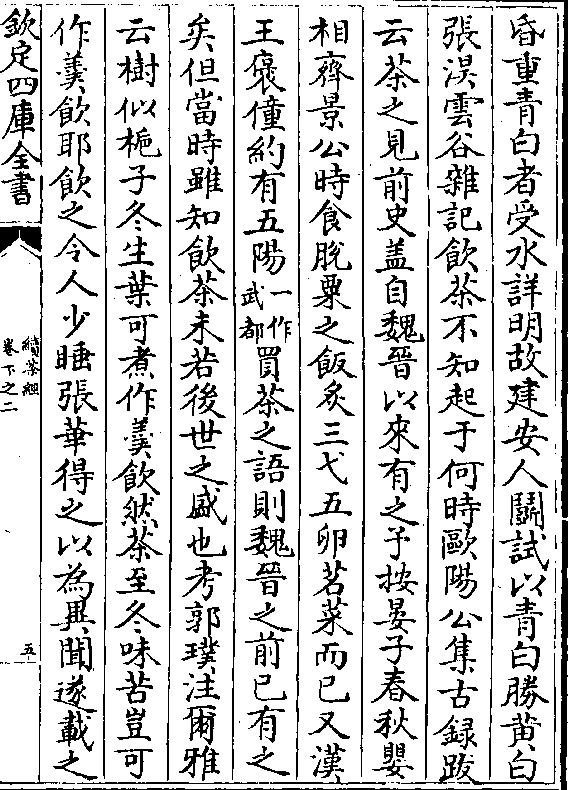 昏重青白者受水詳明故建安人鬭試以青白勝黄白
張淏雲谷雜記飲茶不知起于何時歐陽公集古録跋
云茶之見前史盖自魏晉以來有之予按晏子春秋嬰
相齊景公時食脱粟之飯炙三弋五卵茗菜而已又漢
王褒僮約有五陽一作武都買茶之語則魏晉之前已有之
矣但當時雖知飲茶未若後世之盛也考郭璞注爾雅
云樹似梔子冬生葉可煮作羹飲然茶至冬味苦豈可
作羹飲耶飲之令人少睡張華得之以為異聞遂載之
欽定四庫全書
續茶經
卷下之二
五